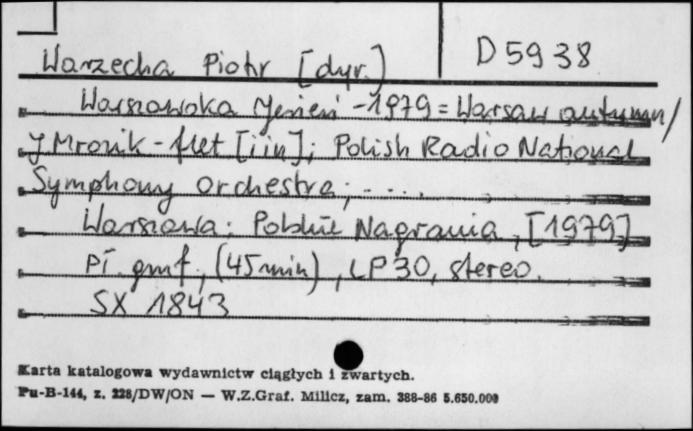 D 5938
Warzecha Piotr [dyr.]
Warszawska Jesień - 1979 = Warsaw autumn /
J Mrozik - flet [i in]; Polish Radio National
Symphony Orchestra; - . . .
Warszawa: Polskie Nagrania, [1979]
Pł. gmf., (45 min), LP 30, stereo.
SX 1843
Karta katalogowa wydawnictw ciągłych i zwartych.
Pu-B-144, z. 228/DW/ON — W.Z.Graf. Milicz, zam. 388-86 5.650.000